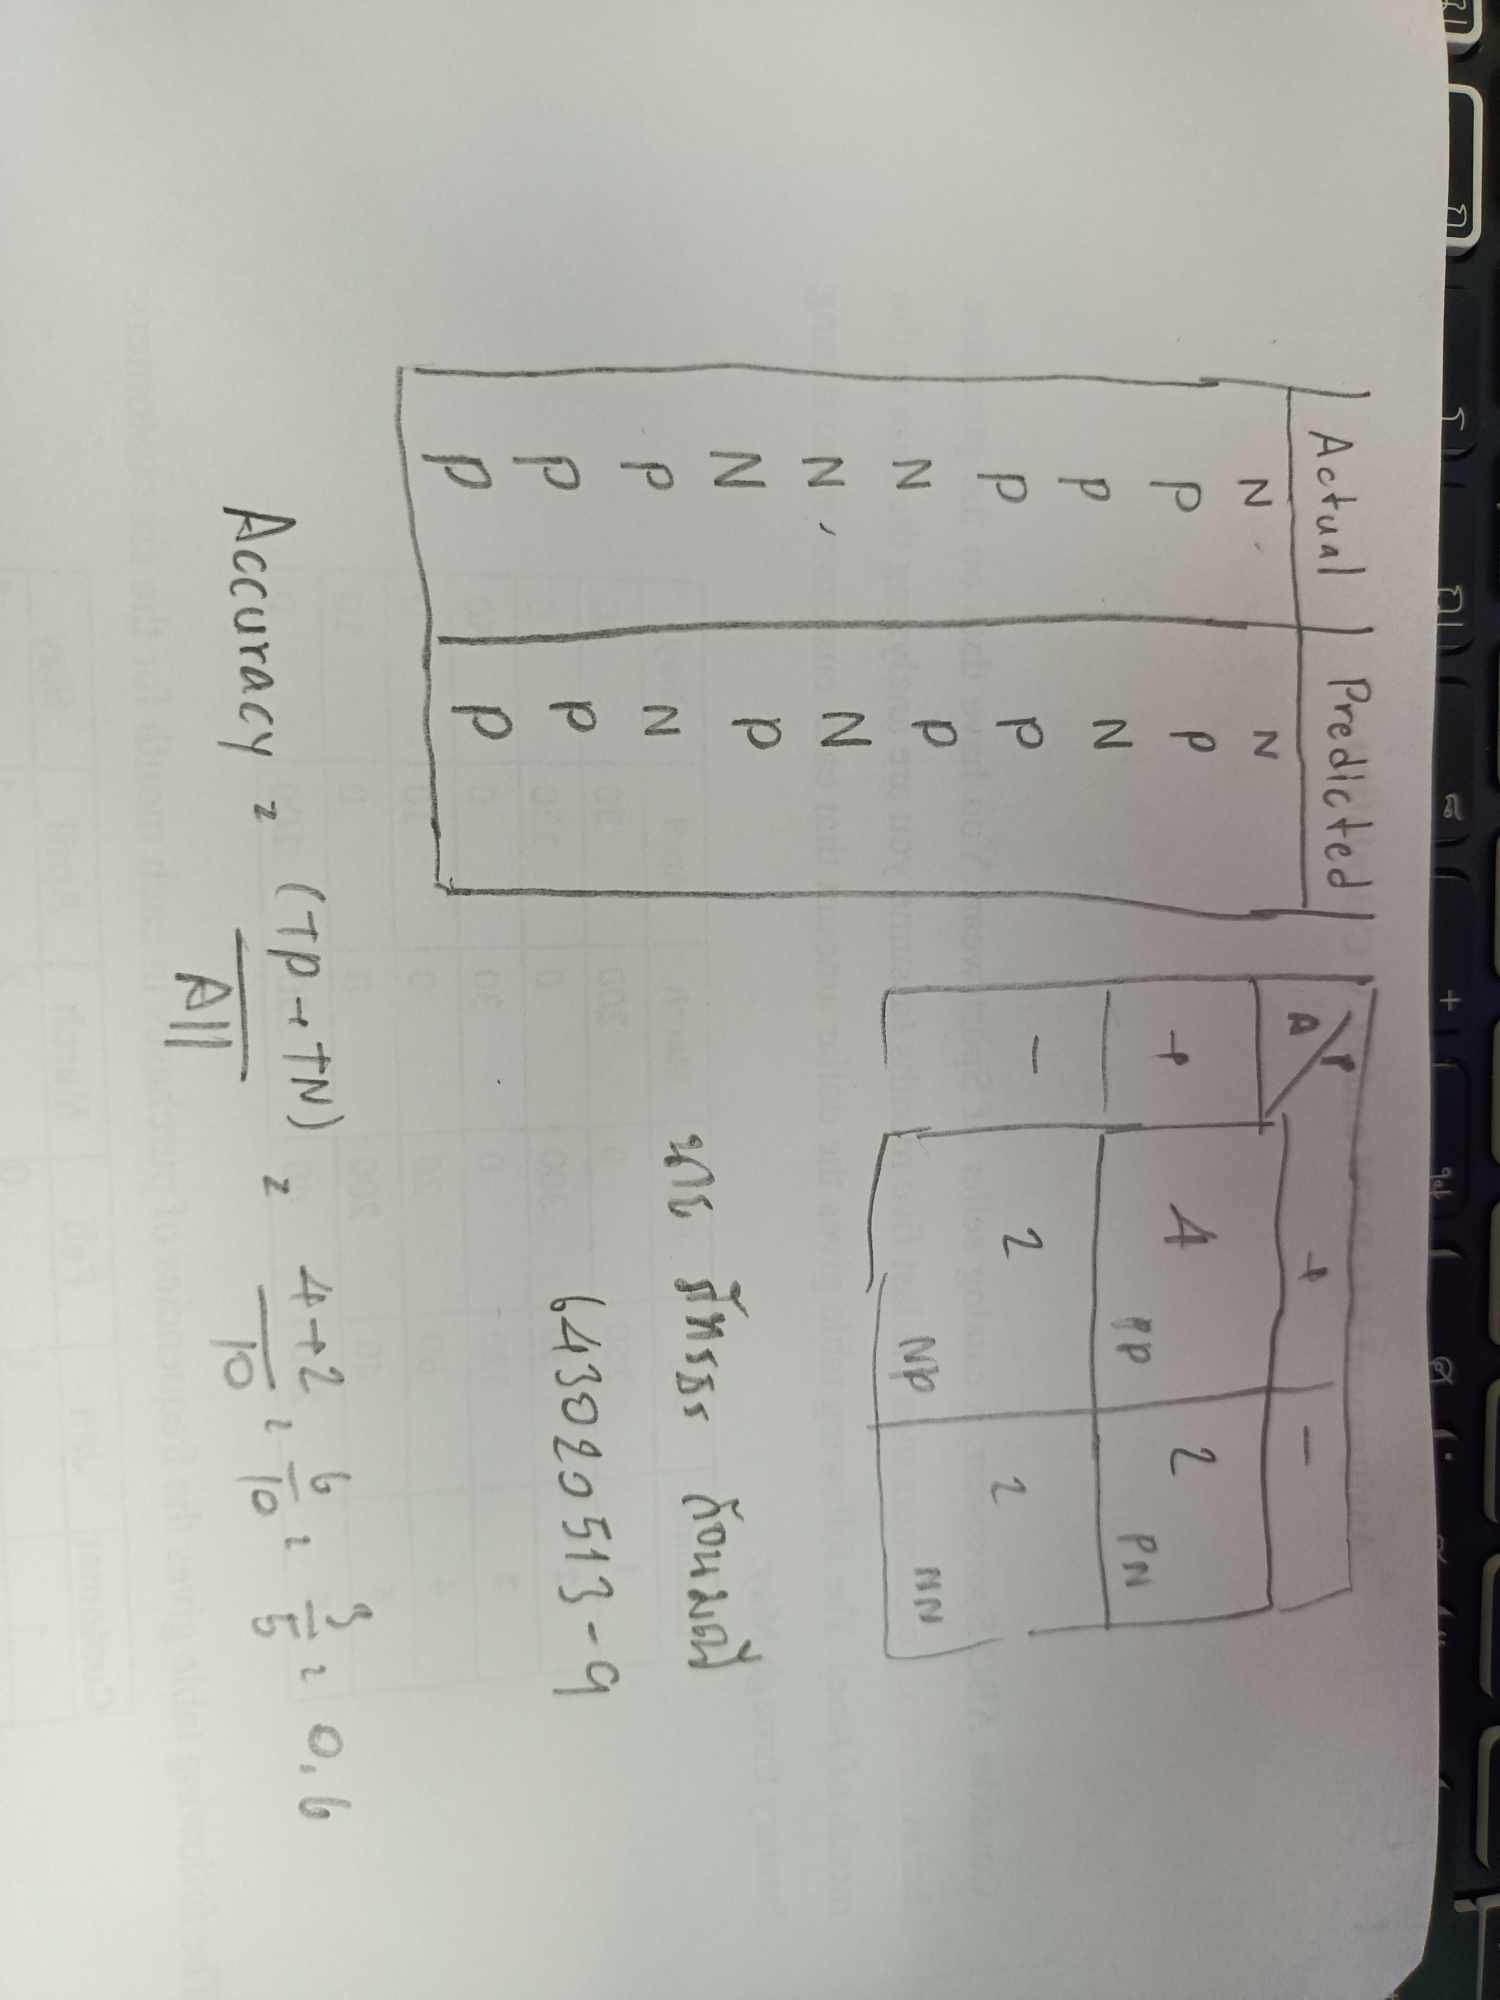 Actual Predicted
N N
P P
P N
P P
N P
N N
N P
P N
P P
P P
A P + -
+ 4 PP 2 PN
- 2 NP 2 NN
นาย ภัทรธร ก้อนมณี
643020513-9
Accuracy = (TP + TN) / All = 4+2 / 10 = 6/10 = 3/5 = 0.6